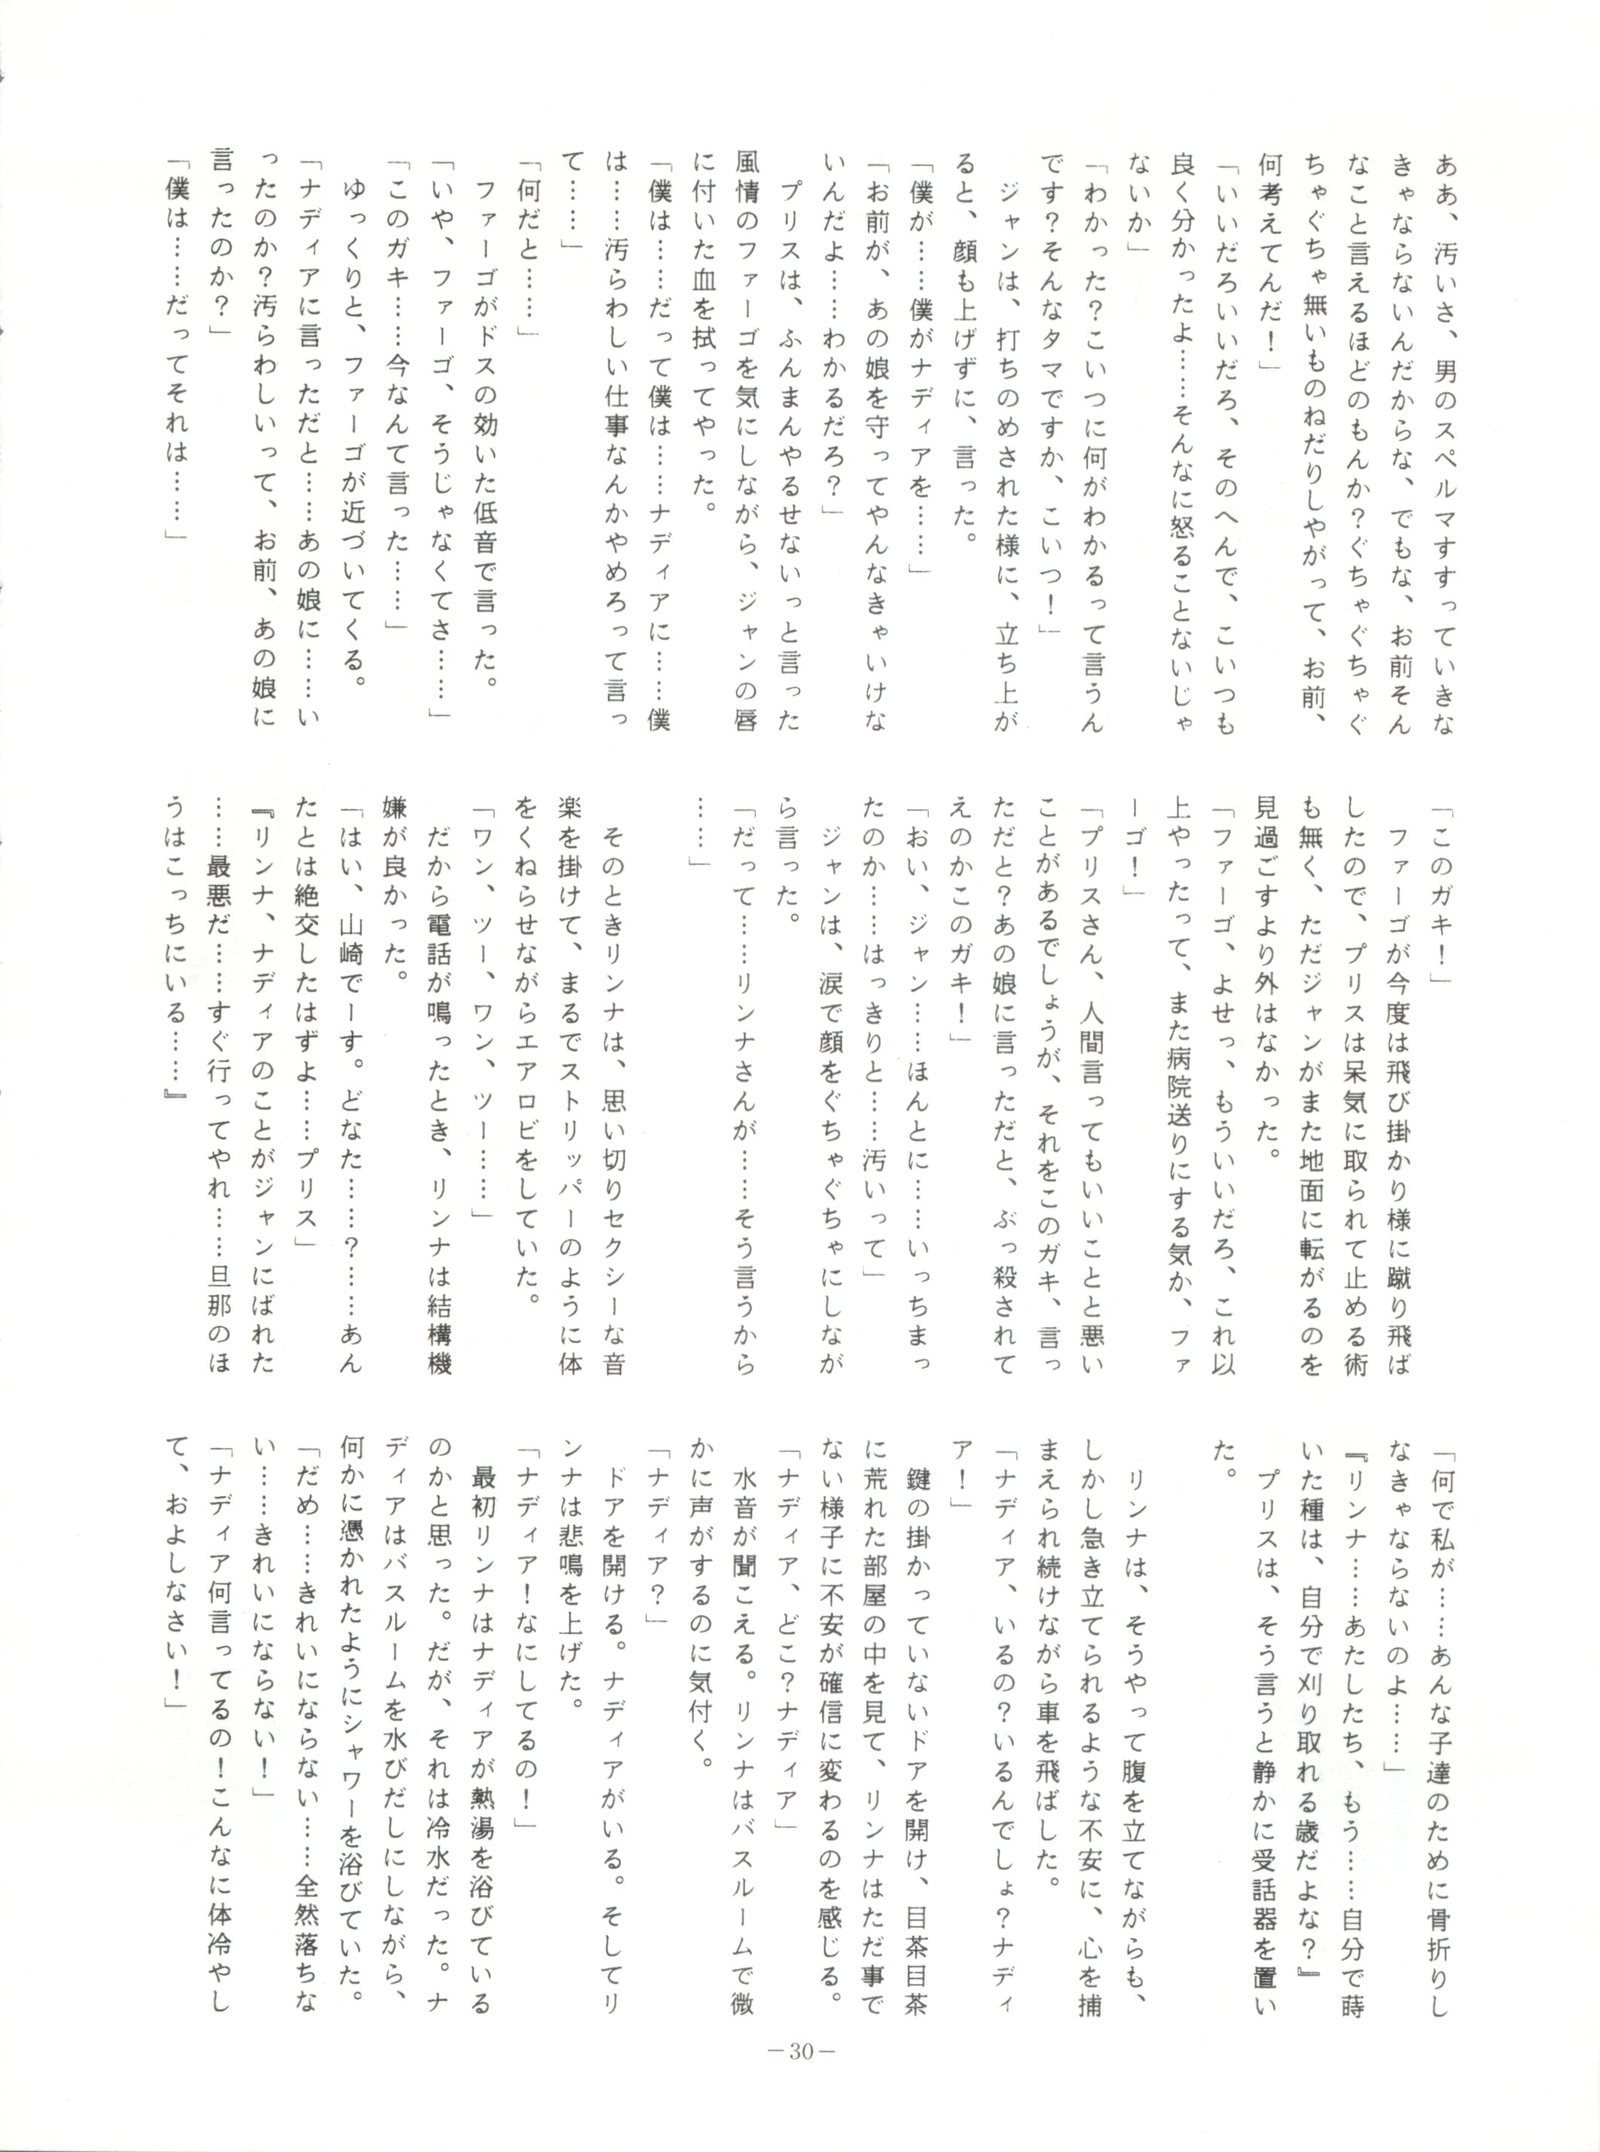 ああ、汚いさ、男のスペルマすすっていきな
きゃならないんだからな、でもな、お前そん
なこと言えるほどのもんか？ぐちゃぐちゃぐ
ちゃぐちゃ無いものねだりしやがって、お前、
何考えてんだ！」
「いいだろいいだろ、そのへんで、こいつも
良く分かったよ……そんなに怒ることないじゃ
ないか」
「わかった？こいつに何がわかるって言うん
です？そんなタマですか、こいつ！」
　ジャンは、打ちのめされた様に、立ち上が
ると、顔も上げずに、言った。
「僕が……僕がナディアを……」
「お前が、あの娘を守ってやんなきゃいけな
いんだよ……わかるだろ？」
　プリスは、ふんまんやるせないっと言った
風情のファーゴを気にしながら、ジャンの唇
に付いた血を拭ってやった。
「僕は……だって僕は……ナディアに……僕
は……汚らわしい仕事なんかやめろって言っ
て……」
「何だと……」
　ファーゴがドスの効いた低音で言った。
「いや、ファーゴ、そうじゃなくてさ……」
「このガキ……今なんて言った……」
　ゆっくりと、ファーゴが近づいてくる。
「ナディアに言っただと……あの娘に……い
ったのか？汚らわしいって、お前、あの娘に
言ったのか？」
「僕は……だってそれは……」
「このガキ！」
　ファーゴが今度は飛び掛かり様に蹴り飛ば
したので、プリスは呆気に取られて止める術
も無く、ただジャンがまた地面に転がるのを
見過ごすより外はなかった。
「ファーゴ、よせっ、もういいだろ、これ以
上やったって、また病院送りにする気か、ファ
ーゴ！」
「プリスさん、人間言ってもいいことと悪い
ことがあるでしょうが、それをこのガキ、言っ
ただと？あの娘に言っただと、ぶっ殺されて
えのかこのガキ！」
「おい、ジャン……ほんとに……いっちまっ
たのか……はっきりと……汚いって」
　ジャンは、涙で顔をぐちゃぐちゃにしなが
ら言った。
「だって……リンナさんが……そう言うから
……」
　そのときリンナは、思い切りセクシーな音
楽を掛けて、まるでストリッパーのように体
をくねらせながらエアロビをしていた。
「ワン、ツー、ワン、ツー……」
　だから電話が鳴ったとき、リンナは結構機
嫌が良かった。
「はい、山崎でーす。どなた……？……あん
たとは絶交したはずよ……プリス」
『リンナ、ナディアのことがジャンにばれた
……最悪だ……すぐ行ってやれ……旦那のほ
うはこっちにいる……』
「何で私が……あんな子達のために骨折りし
なきゃならないのよ……」
『リンナ……あたしたち、もう……自分で蒔
いた種は、自分で刈り取れる歳だよな？』
　プリスは、そう言うと静かに受話器を置い
た。
　リンナは、そうやって腹を立てながらも、
しかし急き立てられるような不安に、心を捕
まえられ続けながら車を飛ばした。
「ナディア、いるの？いるんでしょ？ナディ
ア！」
　鍵の掛かっていないドアを開け、目茶目茶
に荒れた部屋の中を見て、リンナはただ事で
ない様子に不安が確信に変わるのを感じる。
「ナディア、どこ？ナディア」
　水音が聞こえる。リンナはバスルームで微
かに声がするのに気付く。
「ナディア？」
　ドアを開ける。ナディアがいる。そしてリ
ンナは悲鳴を上げた。
「ナディア！なにしてるの！」
　最初リンナはナディアが熱湯を浴びている
のかと思った。だが、それは冷水だった。ナ
ディアはバスルームを水びだしにしながら、
何かに憑かれたようにシャワーを浴びていた。
「だめ……きれいにならない……全然落ちな
い……きれいにならない！」
「ナディア何言ってるの！こんなに体冷やし
て、およしなさい！」
－30－